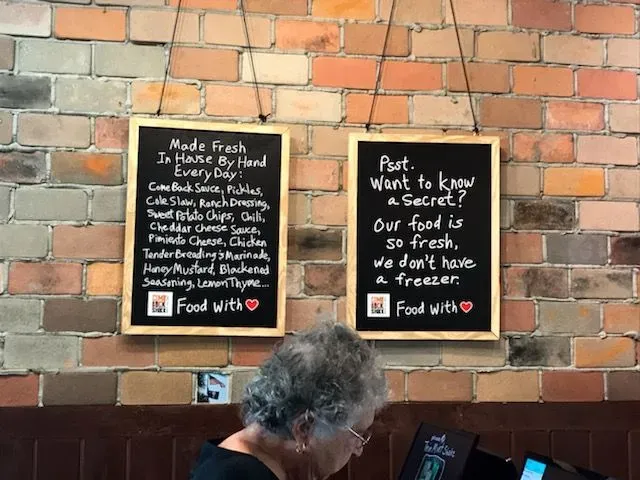 Made Fresh
In House By Hand
Every Day:
Come Back Sauce, Pickles,
Cole Slaw, Ranch Dressing,
Sweet Potato Chips, Chili,
Cheddar Cheese Sauce,
Pimiento Cheese, Chicken
Tender Breading & Marinade,
Honey Mustard, Blackened
Seasoning, Lemon Thyme...
COME
BACK
SHACK
Food With
Psst.
Want to know
a Secret?
Our food is
so fresh,
we don't have
a freezer.
COME
BACK
SHACK
Food With